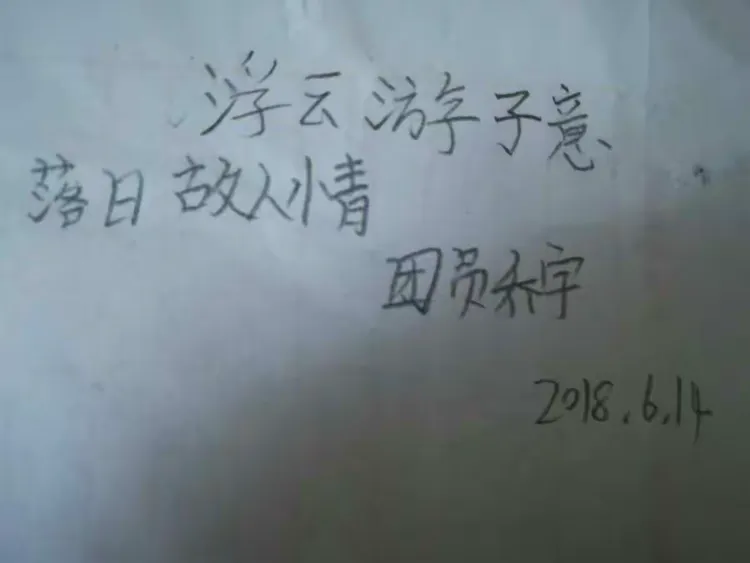 浮云游子意
落日故人情
团员乔宇
2018.6.14